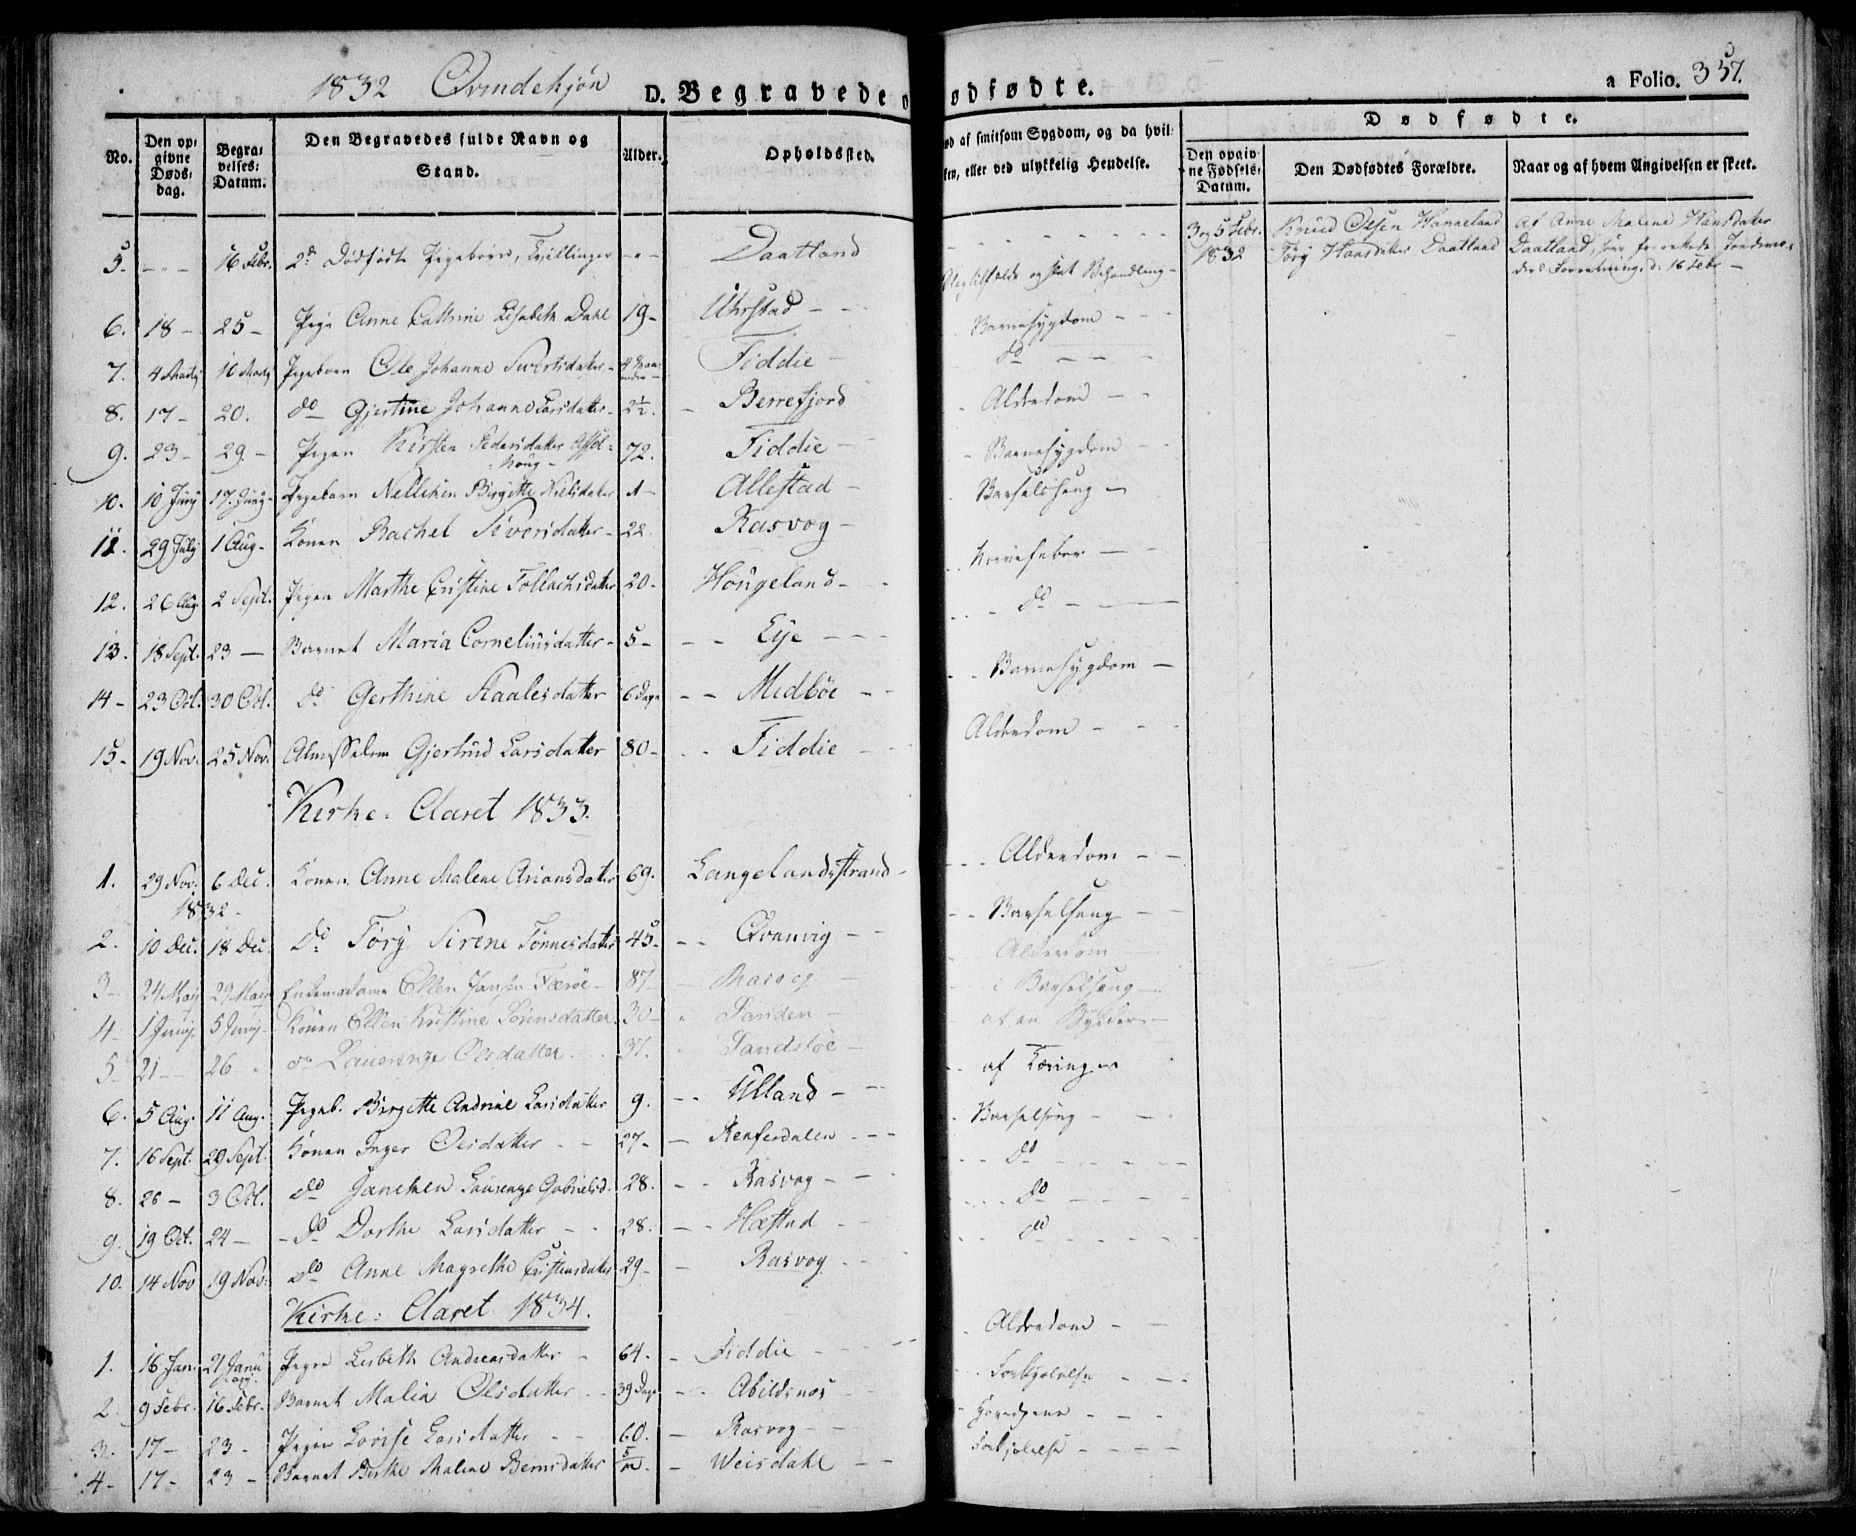 1832 Qvindekjøn D. Begravede o
ødfødte. a Folio. 357.
No. Den opgivne Dødsdag. Begravelses: Datum. Den Begravedes fulde Navn og Stand. Alder. Opholdssted.
ød af smitsom Sygdom, og da hvil:
ken, eller ved ulykkelig Hendelse.
Dødfødte.
Den opgivne Fødsels: Datum. Den Dødfødtes Forældre. Naar og af hvem Angivelsen er skeet.
5. - 16 Febr. 2de Dødfødte Pigebørn, Tvillinger - Daatland
3 og 5 Febr. 1832 Knud Olsen Hanneland Tory Hansdater Daatland
Af Anne Malene Hansdater Daatland
16 Febr
6. 18 - 25 - Pige Anne Cathrine Elisabeth Dahl 19 - Uhrstad - -
7. 4 Martj 10 Martj Pigebarn Ole Johanne Sivertsdater - 4 Maaneder Fiddie - Barnesygdom - -
8. 17 - 20. do Gjertine Johanne Larsdatter - 2½. - Berrefjord do - -
9. 23 - 29 - Pigen Kirsten Pedersdatter 72. Fiddie - Alderdom - -
10. 10 Junj 17 Junj - Pigebarn Nelleken Birgitte Nielsdater 1 - Allestad - Barnesygdom -
11. 29 July 1 Aug - Konen Rachel Siversdatter - 22 Rasvog - Barselseng -
12. 26 Aug 2 Sept. Pigen Marthe Cristine Tollachsdatter 20 - Hougeland - Nervefeber - -
13. 18 Sept. 23 - Barnet Maria Corneliusdatter - 5 - - - Eye - - - do - -
14 - 23 Oct. 30 Oct. do Gerthine Staalesdatter 6 Dage - - Midbøe - - Barnesygdom -
15 - 19 Nov. 25 Nov. Almisselem Gjertrud Larsdatter 80 - - Fiddie - Alderdom - -
Kirke: Aaret 1833.
1. 29 Nov. 1832 6 Dec. Konen Anne Malene Arionsdater 69. Langelandsstrand - - - Alderdom - -
2. 10 Dec. 18 Dec. do Tory Sirene Tönnesdatter 45 - - - Qvanvig - - - - Barselseng - -
3 - 24 Maij 29 Maij Enkemadame Ellen Jansen Færöe - 87 - - Rasvog - Alderdom
4 - 1 Junij 5 Junij - Konen Ellen Kristine Sörensdatter 30 - Sanden - i Barselseng -
5 - 21 - 26 - do Laurenze Olsdatter 37. Sandsböe - af en Bylder -
6. 5 Aug. 11 Aug. Pigeb. Birgitte Andrine Larsdatter 9. - - Ulland - - - af Tæring
7. 16 Sept. 29 Sept. Konen Inger Olsdatter - - 27 - - Refersdalen - - - Barselseng - -
8. 26 - 3 Oct. do Janeken Laurenze Gabrielsd. 28. - - Rasvog - - - - do - - -
9. 19 Oct. 24 - - do Dorthe Larsdatter - - 28. - - Hæstad - - - - do - - -
10. 14 Nov 19 Nov. do Anne Magrethe Cristensdater 29 - - Rasvog - - do - - -
Kirke: Aaret 1834.
1. 16 Jan. 21 Januarij Pigen Lisbeth Andreasdatter - 64. - Fiddie - - Alderdom - -
2. 9 Febr. 16 Febr. Barnet Malia Olsdatter - - 39 Dage - - Abildsnes - - Forkjølelse - -
3. 17 - 23 - Pigen Lovise Larsdatter - - 60. - Rasvog - -
4 - 17 - 23 - Barnet Birthe Malene Berntsdatter 5/m. - Weisdahl - - Forkjølelse - - -